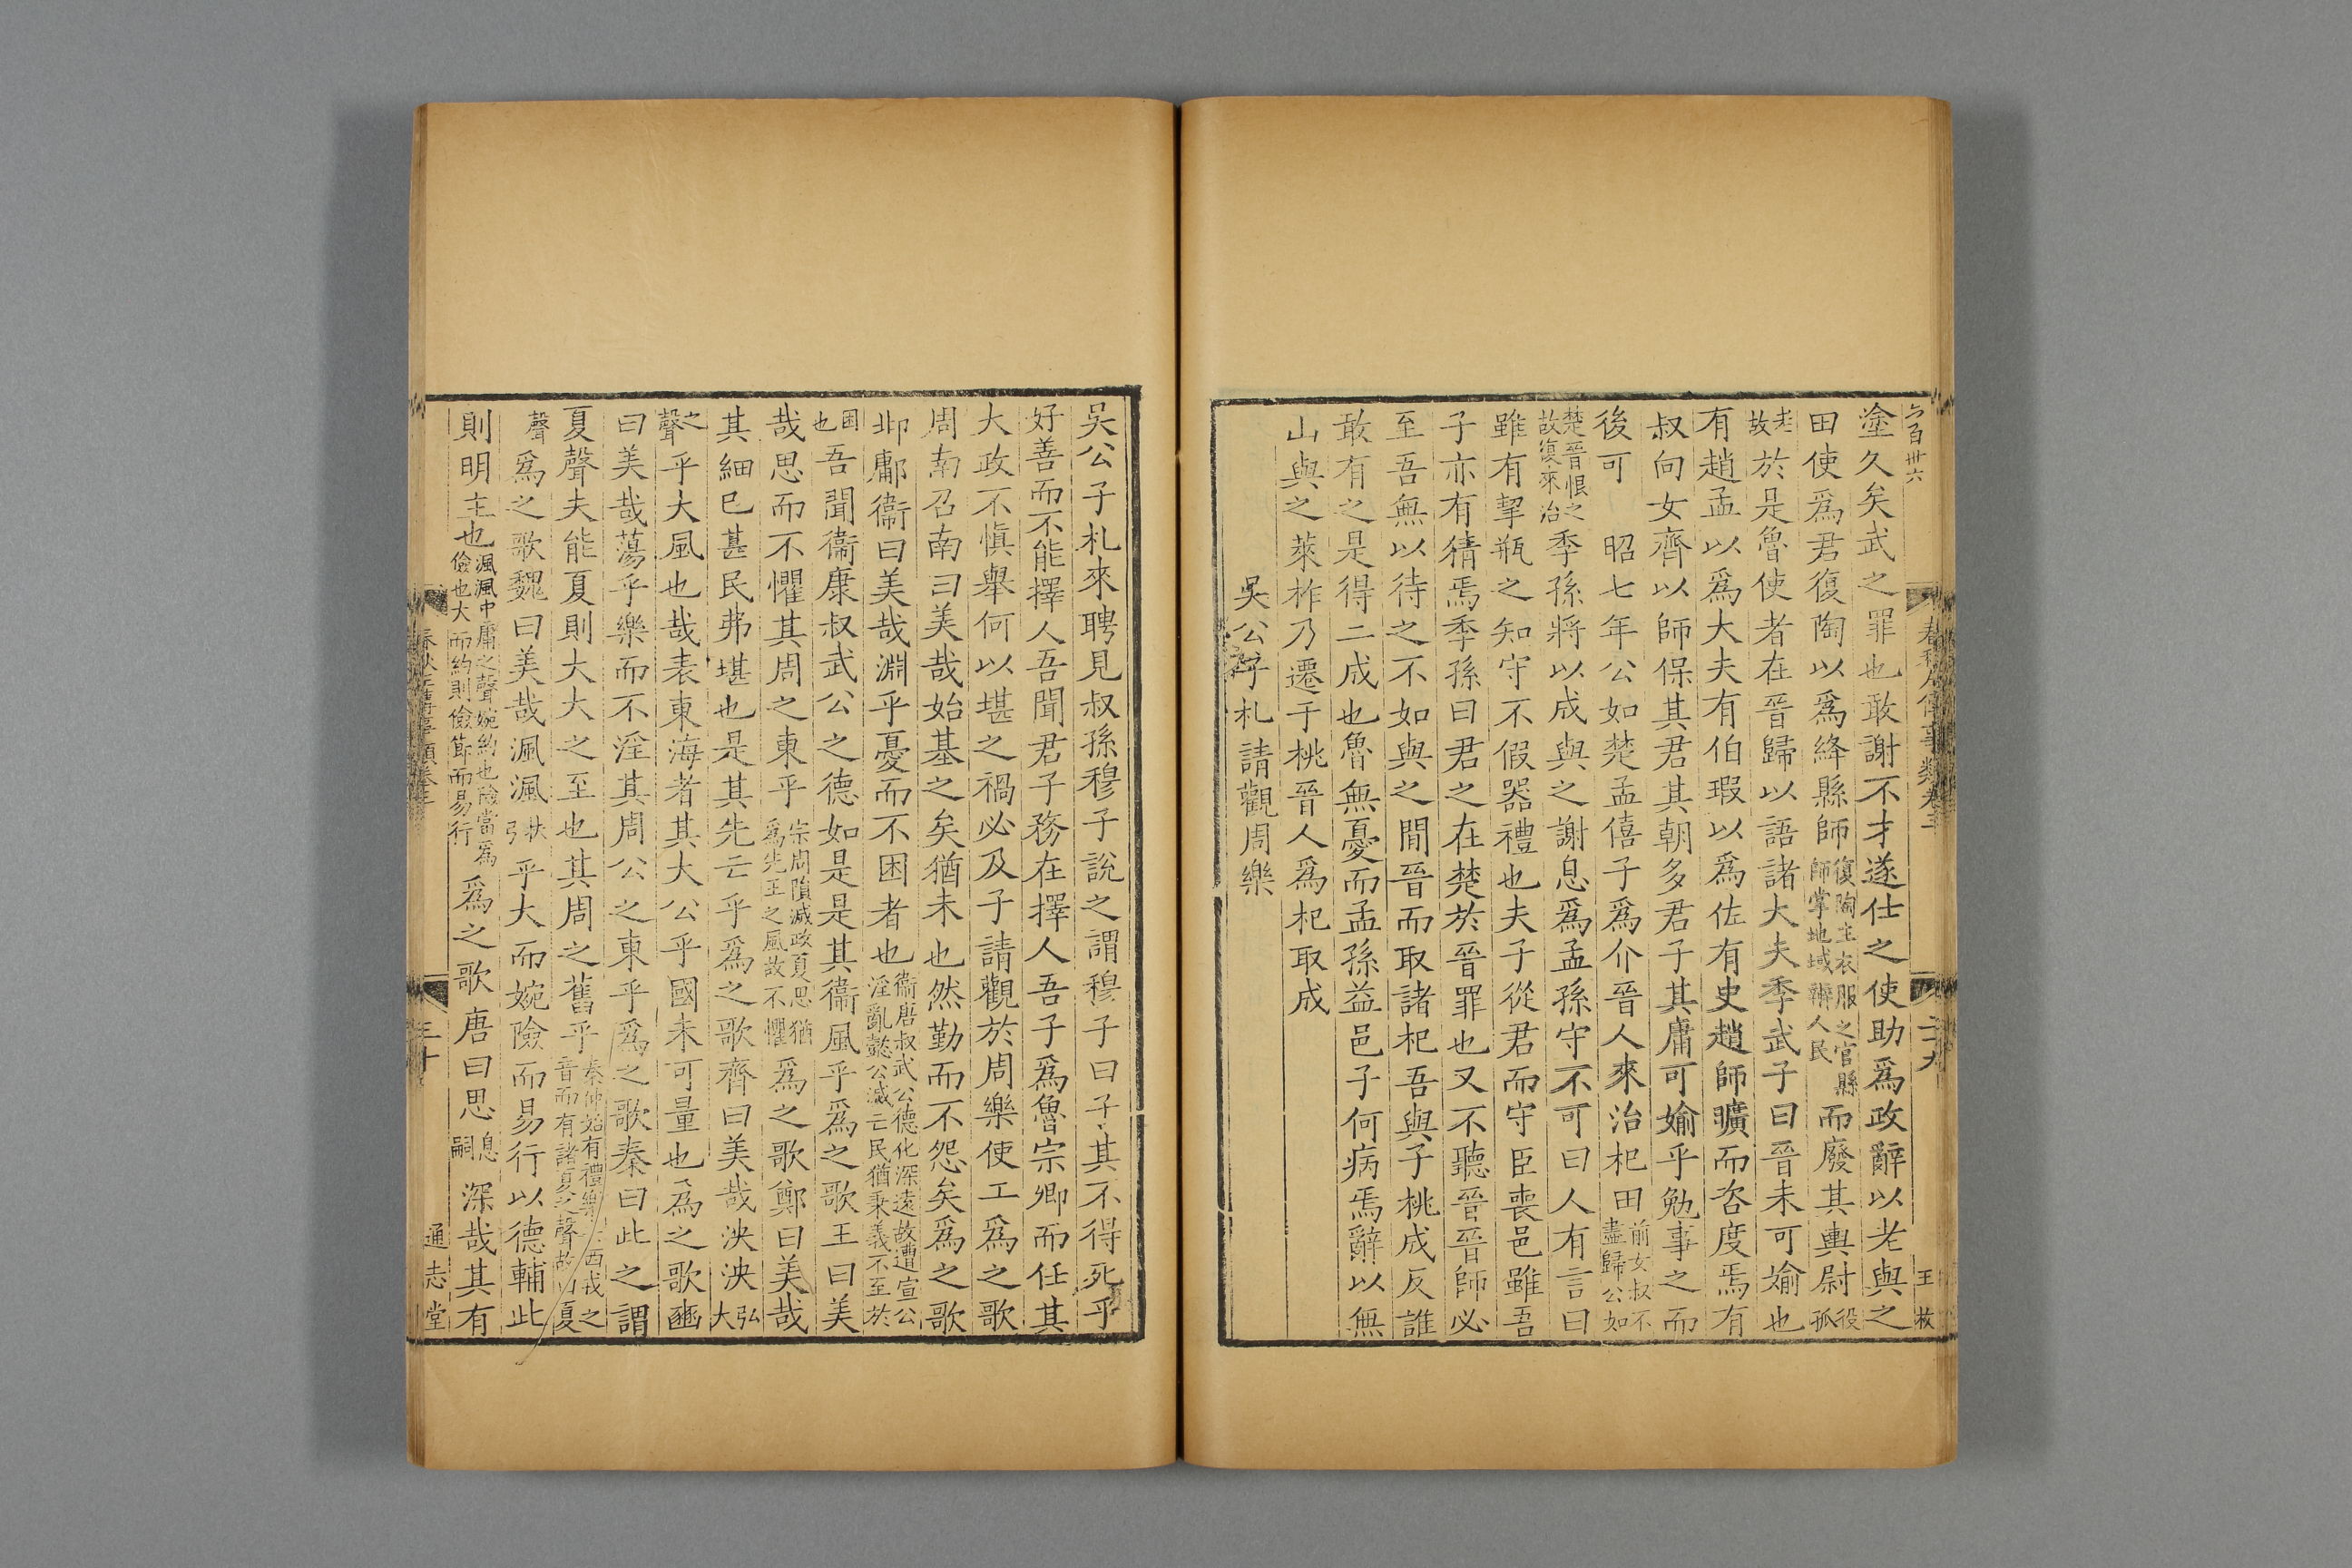 六百卌六
塗久矣武之罪也敢謝不才遂仕之使助為政辭以老與之
田使為君復陶以為絳縣師復陶主衣服之官縣師掌地域辨人民而廢其輿尉役孤
老故於是魯使者在晉歸以語諸大夫季武子曰晉未可媮也
有趙孟以為大夫有伯瑕以為佐有史趙師曠而咨度焉有
叔向女齊以師保其君其朝多君子其庸可媮乎勉事之而
後可 昭七年公如楚孟僖子為介晉人來治杞田前女叔不盡歸公如
楚晉恨之故復來治季孫將以成與之謝息為孟孫守不可曰人有言曰
雖有挈瓶之知守不假器禮也夫子從君而守臣喪邑雖吾
子亦有猜焉季孫曰君之在楚於晉罪也又不聽晉晉師必
至吾無以待之不如與之閒晉而取諸杞吾與子桃成反誰
敢有之是得二成也魯無憂而孟孫益邑子何病焉辭以無
山與之萊柞乃遷于桃晉人為杞取成
吳公子札請觀周樂
二十九
王 荻
吳公子札來聘見叔孫穆子說之謂穆子曰子其不得死乎
好善而不能擇人吾聞君子務在擇人吾子為魯宗卿而任其
大政不慎舉何以堪之禍必及子請觀於周樂使工為之歌
周南召南曰美哉始基之矣猶未也然勤而不怨矣為之歌
邶鄘衞曰美哉淵乎憂而不困者也衞唐叔武公德化深遠故遭宣公淫亂懿公滅亡民猶秉義不至於
困也吾聞衞康叔武公之德如是是其衞風乎為之歌王曰美
哉思而不懼其周之東乎宗周隕滅政夏思猶為先王之風故不懼為之歌鄭曰美哉
其細已甚民弗堪也是其先亡乎為之歌齊曰美哉泱泱弘大
之聲乎大風也哉表東海者其大公乎國未可量也為之歌豳
曰美哉蕩乎樂而不淫其周公之東乎為之歌秦曰此之謂
夏聲夫能夏則大大之至也其周之舊乎秦仲始有禮樂去西戎之音而有諸夏之聲故曰夏
聲為之歌魏曰美哉渢渢扶弓乎大而婉險而易行以德輔此
則明主也渢渢中庸之聲婉約也險當為儉也大而約則儉節而易行為之歌唐曰思息嗣深哉其有
三十
通志堂